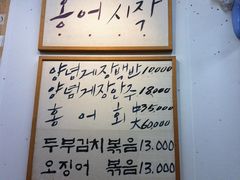 홍어시작
양념게장백반 10,000
양념게장안주 18,000
홍어회 中35,000
大60,000
두부김치볶음 13,000
오징어볶음 13,000